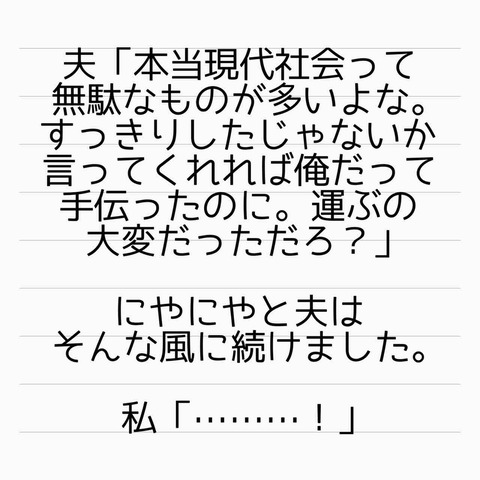 夫「本当現代社会って
無駄なものが多いよな。
すっきりしたじゃないか
言ってくれれば俺だって
手伝ったのに。運ぶの
大変だっただろ？」
にやにやと夫は
そんな風に続けました。
私「………！」